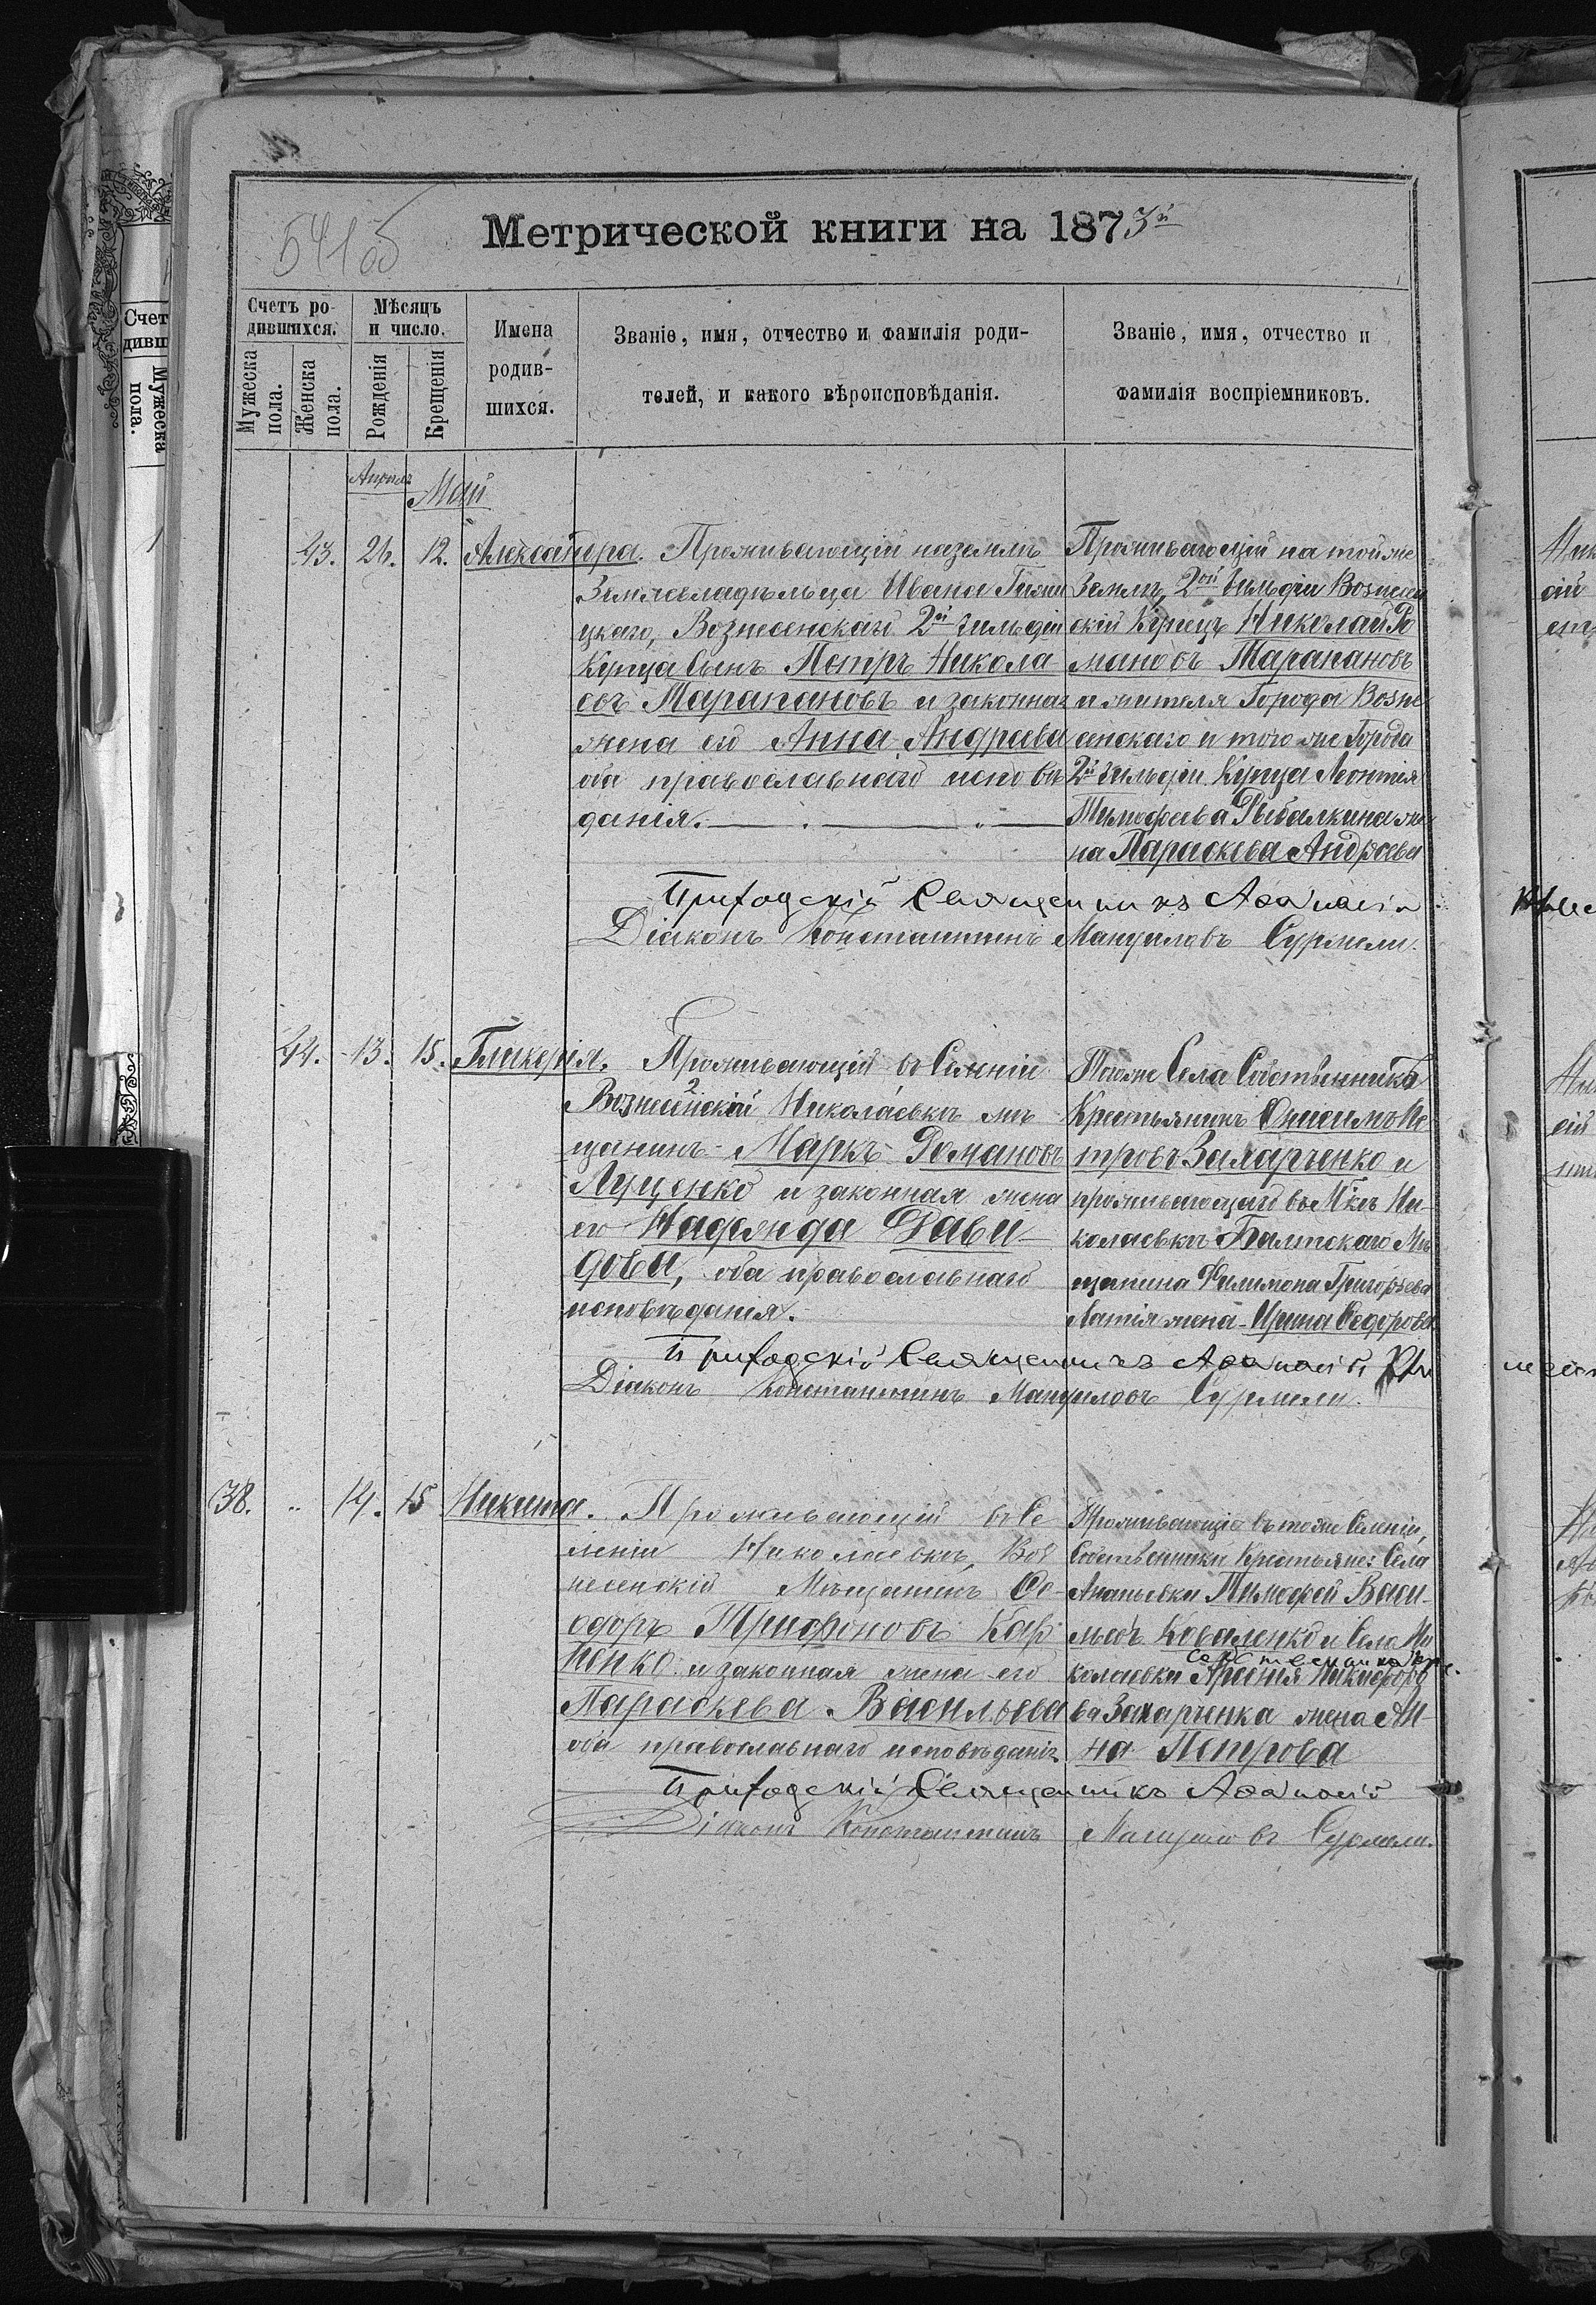 541об
Метрической книги на 1873й
Счетъ ро-
дившихся.
Мѣсяцъ
и число.
Мужеска
пола.
Женска
пола.
Рожденія
Крещенія
Имена
родив-
шихся.
Званіе, имя, отчество и фамилія роди-
телей, и какого вѣроисповѣданія.
Званіе, имя, отчество и
фамилія воспріемниковъ.
Апрѣль
Май
43. 26. 12. Александра.
Проживающій на землѣ
Землевладѣльца Ивана
цкаго, Вознесенскаго 2й гильдіи
Купца Сынъ Петръ Никола-
евъ Тарапановъ и законная
жена его Анна Андреева
оба православнаго исповѣ
данія.
Проживающій на той же
Землѣ, 2ой гильдіи Вознесен
скій Купецъ Николай Ро
мановъ Тарапановъ
и жителя Города Возне
сенскаго и того же Города
2й гильдіи Купца Леонтія
Тимофеева Рыбалкина же
на Параскева Андреева
Приходскій Священникъ Аѳанасій
Діаконъ Константинъ Мануиловъ Сурмели.
44. 13. 15. Гликерія.
Проживающій въ Селеніи
Николаевкѣ мѣ
щанинъ Маркъ Романовъ
Луценко и законная жена
его Надежда Дави-
дова, оба православнаго
исповѣданія.
Тогоже Села Собственникъ
Крестьянинъ Онисимъ Пе
тровъ Захарченко и
проживающаго въ М-кѣ Ни-
колаевкѣ Балтскаго Мѣ
щанина Филимона Григорьева
жена Ирина Федорова
Приходскій Священникъ Аѳанасій
Діаконъ Константинъ Мануиловъ Сурмели.
38. " 14. 15 Никита.
Проживающій въ Се
леніи Николаевкѣ, Воз
несенскій Мѣщанинъ Ѳе-
одоръ Трифоновъ Кар
пенко и законная жена его
Параскева Васильева
оба православнаго исповѣданія
Проживающіе въ томже Селеніи,
Собственники Крестьяне: Села
Ананьевки Тимофей Васи-
льевъ Коваленко и Села Ни
собственника кре.
колаевки Арсенія Никифоро
ва Захарченка жена Ан-
на Петрова
Приходскій Священникъ Аѳанасій
Діаконъ Константинъ Мануиловъ Сурмели.